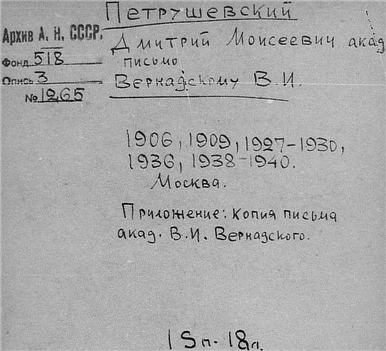 Петрушевский
Архив А. Н. СССР.
Дмитрий Моисеевич акад
Фонд 518
письмо
Опись 3
Вернадскому В.И.
№ 1265
1906, 1909, 1927-1930,
1936, 1938-1940.
Москва.
Приложение: Копия письма
акад. В.И. Вернадского.
18л.